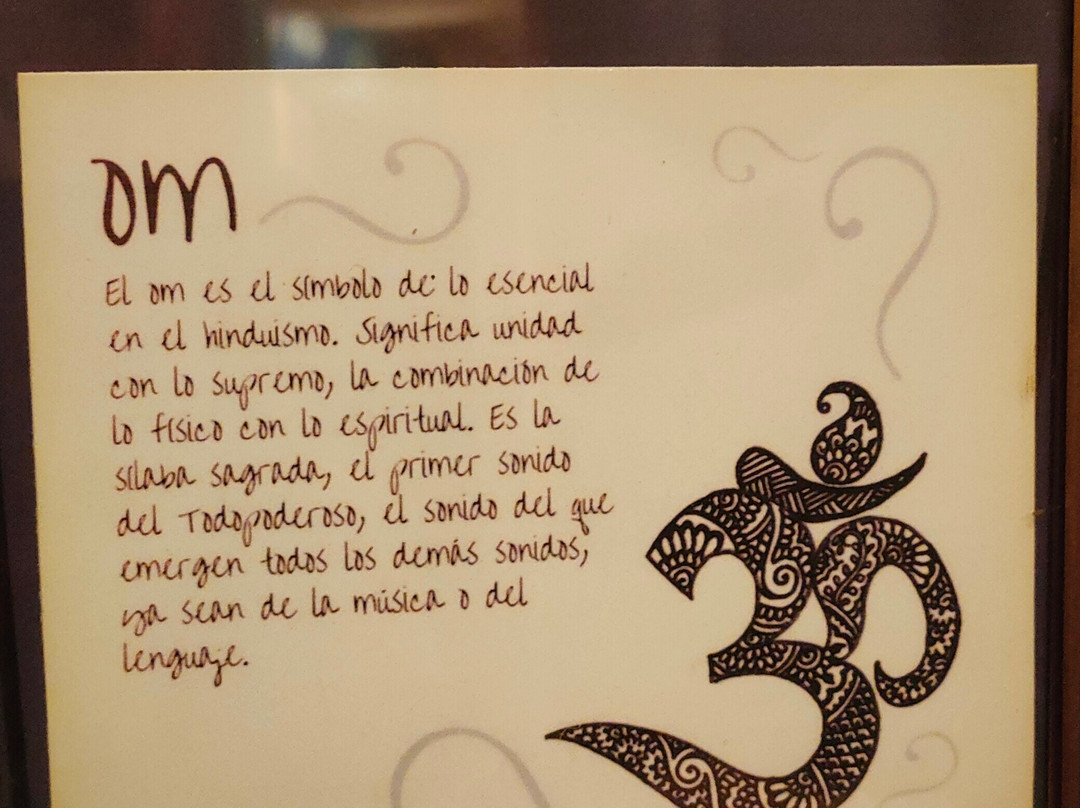 om
El om es el símbolo de lo esencial
en el hinduismo. Significa unidad
con lo supremo, la combinación de
lo físico con lo espiritual. Es la
sílaba sagrada, el primer sonido
del Todopoderoso, el sonido del que
emergen todos los demás sonidos,
ya sean de la música o del
lenguaje.
ॐ